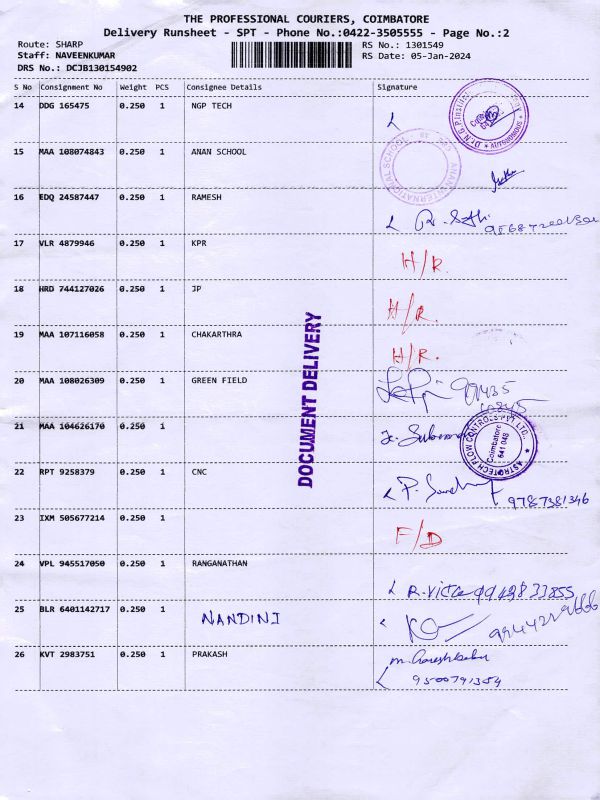 THE PROFESSIONAL COURIERS, COIMBATORE
Delivery Runsheet - SPT - Phone No.:0422-3505555 - Page No.:2
Route: SHARP
RS No.: 1301549
Staff: NAVEENKUMAR
RS Date: 05-Jan-2024
DRS No.: DCJB130154902
S No Consignment No Weight PCS Consignee Details Signature
14 DDG 165475 0.250 1 NGP TECH
AUTONOMOUS
15 MAA 108074843 0.250 1 ANAN SCHOOL
ANAN INTERNATIONAL SCHOOL
16 EDQ 24587447 0.250 1 RAMESH
17 VLR 4879946 0.250 1 KPR H/R.
18 HRD 744127026 0.250 1 JP H/R.
19 MAA 107116058 0.250 1 CHAKARTHRA H/R.
DOCUMENT DELIVERY
20 MAA 108026309 0.250 1 GREEN FIELD
21 MAA 104626170 0.250 1
ASTROTECH FLOW CONTROLS PVT LTD.,
Coimbatore
641 048
22 RPT 9258379 0.250 1 CNC 9787381346
23 IXM 505677214 0.250 1 F/D
24 VPL 945517050 0.250 1 RANGANATHAN
25 BLR 6401142717 0.250 1 NANDINI
26 KVT 2983751 0.250 1 PRAKASH
9500791354